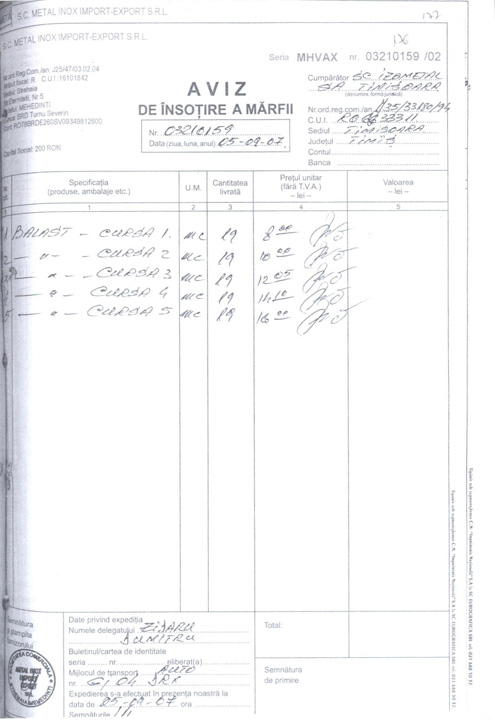 S.C. METAL INOX IMPORT-EXPORT S.R.L.
S.C. METAL INOX IMPORT-EXPORT S.R.L.
Seria MHVAX nr. 03210159 /02
J25/47/03.02.04
C.U.I. 16101842
Strehaia
Nr. 5
MEHEDINTI
BRD Turnu Severin
Capital Social: 200 RON
AVIZ
DE ÎNSOȚIRE A MĂRFII
Nr. 03210159
Data (ziua, luna, anul) 05-09-07.
Cumpărător SC IZOMETAL
SA TIMIȘOARA
(denumire, forma juridică)
Nr.ord.reg.com./an
C.U.I.
Sediul TIMIȘOARA
Județul TIMIȘ
Contul
Banca
Specificația
(produse, ambalaje etc.)
U.M.
Cantitatea
livrată
Prețul unitar
(fără T.V.A.)
– lei –
Valoarea
– lei –
1 2 3 4 5
1 BALAST - CURSA 1. mc 19 8 00
2 – " – CURSA 2 mc 19 10 00
3 – " – CURSA 3 mc 19 12 05
4 – " – CURSA 4 mc 19 14 10
5 – " – CURSA 5 mc 19 16 00
Semnătura
și ștampila
furnizorului
Date privind expediția
Numele delegatului ZISARU
DUMITRU
Buletinul/cartea de identitate
seria nr. eliberat(a)
Mijlocul de transport AUTO
nr. GJ 04 SRX
Expedierea s-a efectuat în prezența noastră la
data de 05-09-07 ora
Semnăturile
Total:
Semnătura
de primire
METAL INOX
IMPORT
EXPORT